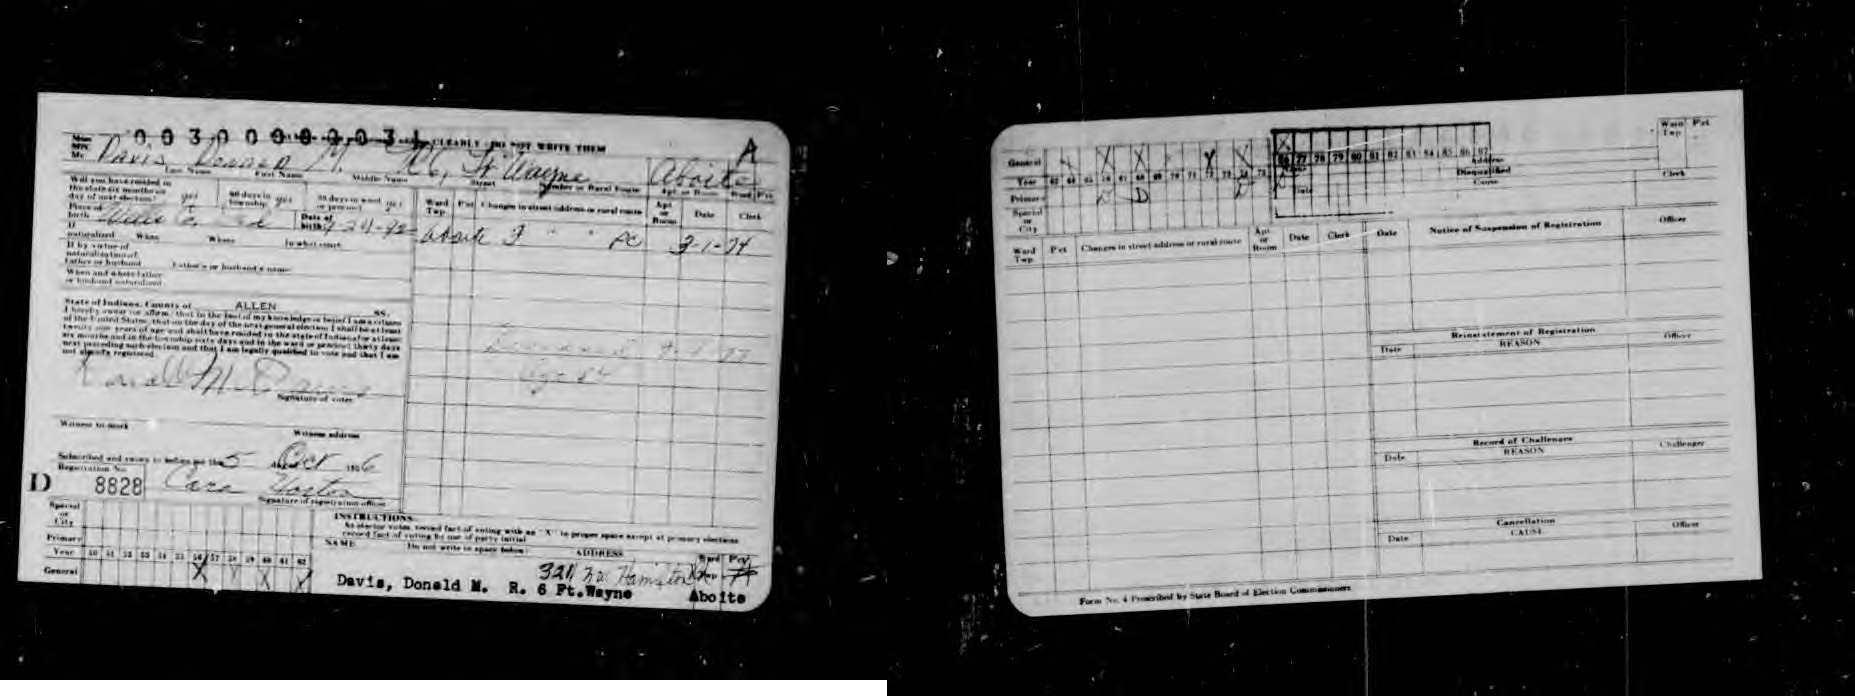 0030000031
CLEARLY - DO NOT WRITE THEM
A
Miss
Mrs.
Mr. Davis, Donald M. R6, Ft Wayne Aboite
Last Name First Name Middle Name Street Number or Rural Route Apt. or Room Ward Pct.
Will you have resided in the state six months on day of next election? yes 60 days in township? yes 30 days in ward or precinct? yes
Place of birth Wells Co. Ind Date of birth
If naturalized When Where In what court
If by virtue of naturalization of father or husband Father's or husband's name
When and where father or husband naturalized
Ward Twp. Pct Changes in street address or rural route Apt. or Room Date Clerk
Aboite 7 " " PC 3-1-74
State of Indiana, County of ALLEN SS.
I hereby swear (or affirm) that to the best of my knowledge or belief I am a citizen
of the United States, that on the day of the next general election I shall be at least
twenty-one years of age and shall have resided in the state of Indiana for at least
six months and in the township sixty days and in the ward or precinct thirty days
next preceding such election and that I am legally qualified to vote and that I am
not already registered.
Donald M. Davis
Signature of voter
Age 84
Witness to mark Witness address
Subscribed and sworn to before me this 5 day Oct 1956
Registration No.
D 8828
Signature of registration officer
Special or City
Primary
Year 50 51 52 53 54 55 56 57 58 59 60 61 62
General X X X X
INSTRUCTIONS
As elector votes, record fact of voting with an "X" in proper space except at primary elections
record fact of voting by use of party initial
NAME Do not write in space below: ADDRESS Ward Pct.
Davis, Donald M. R. 6 Ft.Wayne Aboite
General X X X X X
Year
Primary D
Special or City
76 77 78 79 80 81 82 83 84 85 86 87
Address
Disqualified
Date Cause Clerk
Ward Twp Pct.
Ward Twp. Pct Changes in street address or rural route Apt. or Room Date Clerk
Date Notice of Suspension of Registration Officer
Reinstatement of Registration
Date REASON Officer
Record of Challenges
Date REASON Challenger
Cancellation
Date CAUSE Officer
Form No. 4 Prescribed by State Board of Election Commissioners